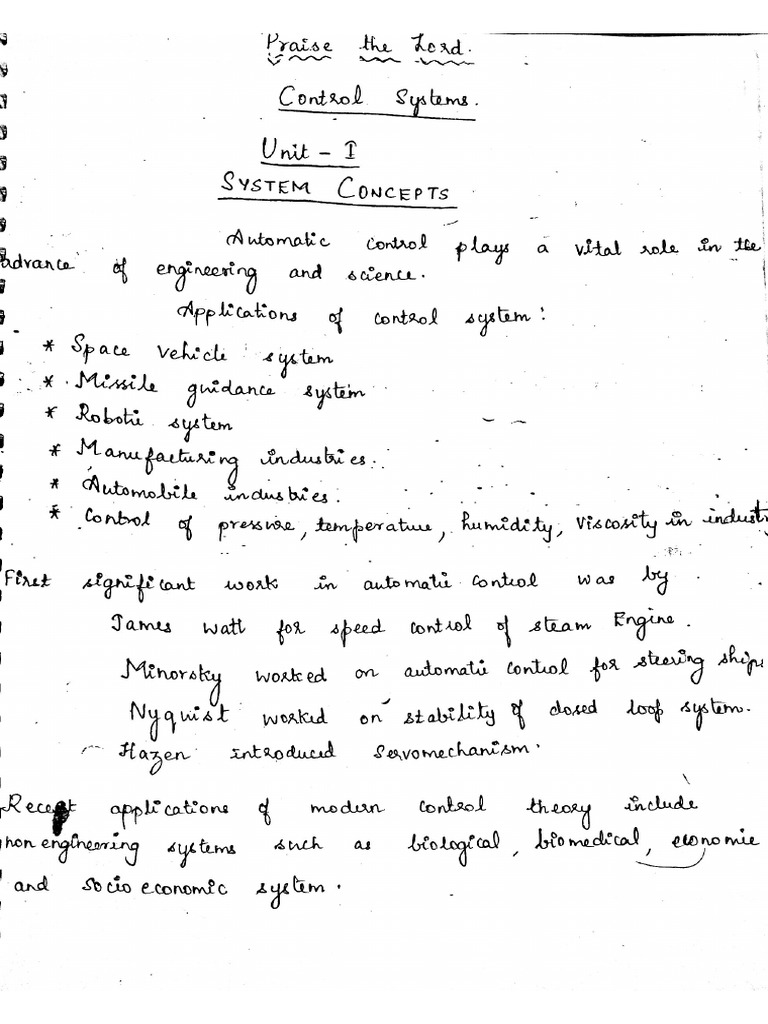 Praise the Lord.
Control Systems.
Unit - I
SYSTEM CONCEPTS
Automatic control plays a vital role in the
advance of engineering and science.
Applications of control system:
* Space vehicle system
* Missile guidance system
* Robotic system
* Manufacturing industries.
* Automobile industries.
* Control of pressure, temperature, humidity, viscosity in industr
First significant work in automatic control was by
James Watt for speed control of steam Engine.
Minorsky worked on automatic control for steering ships
Nyquist worked on stability of closed loop system.
Hazen introduced servomechanism.
Recent applications of modern control theory include
non engineering systems such as biological, biomedical, economic
and socio economic system.